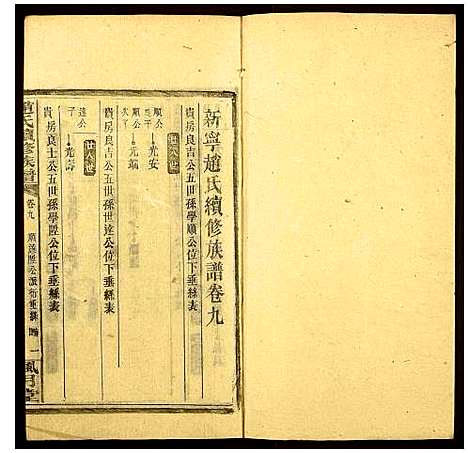 新寧趙氏續修族譜卷九
貴房良吉公五世孫學順公位下垂絲表
順公
光安
順公
光瑞
貴房良吉公五世孫世達公位下垂絲表
世
達公
子
光壽
貴房良士公五世孫學陞公位下垂絲表
趙氏續修族譜
卷九
順達陞公派衍垂絲
一
風月堂